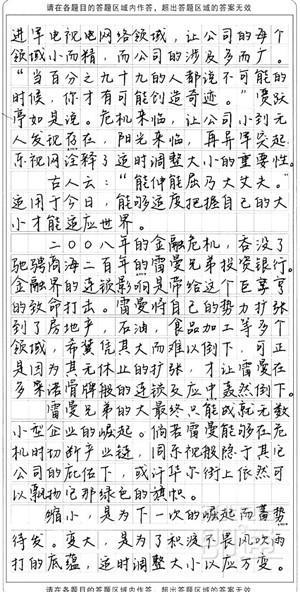 请在各题目的答题区域内作答，超出答题区域的答案无效
进军电视电网络领域，让公司的每个
领域小而精，而公司的涉及多而广。
“当百分之九十九的人都说不可能的
时候，你才有可能创造奇迹。”贾跃
亭如是说。危机来临，让公司小到无
人发现存在，阳光来临，再异军突起，
乐视网诠释了适时调整大小的重要性。
古人云：“能伸能屈乃大丈夫。”
运用于今日，能够适度把握自己的大
小才能适应世界。
二〇〇八年的金融危机，吞没了
驰骋商海二百年的雷曼兄弟投资银行。
金融界的连锁影响是带给这个巨鳄
的致命打击。雷曼将自己的势力扩张
到了房地产，石油，食品加工等多个
领域，希冀凭其大而难以倒下，可正
是因为其无休止的扩张，才让雷曼在
多米诺骨牌般的连锁反应中轰然倒下。
雷曼兄弟的大最终只能成就无数
小型企业的崛起。倘若雷曼能够在危
机时切断产业链，同乐视般隐于其它
公司的庇佑下，或许华尔街上依然可
以飘扬它那绿色的旗帜。
缩小，是为下一次的崛起而蓄势
待发。变大，是为了积淀不畏风吹雨
打的底蕴，适时调整大小以应万变。
请在各题目的答题区域内作答，超出答题区域的答案无效